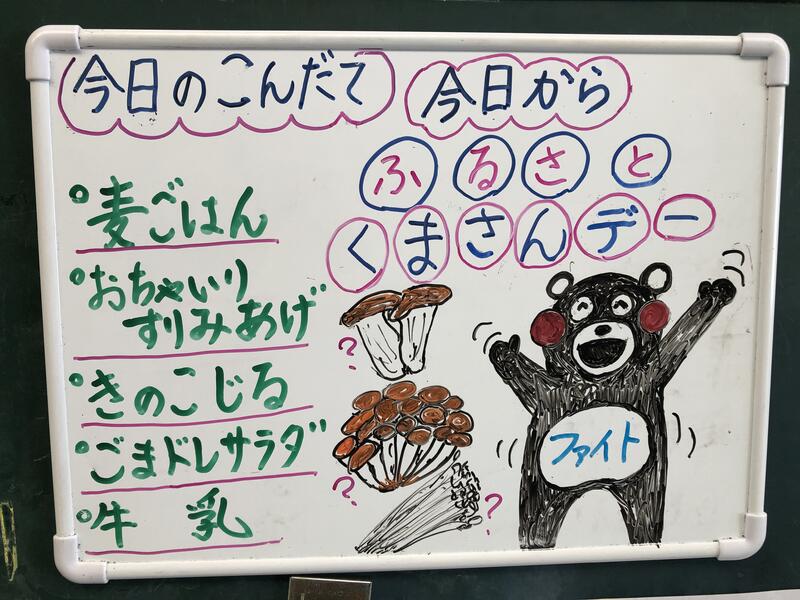 今日のこんだて
。麦ごはん
。おちゃいり
すりみあげ
。きのこじる
。ごまドレサラダ
。牛 乳
今日から
ふるさと
くまさんデー
?
?
?
ファイト